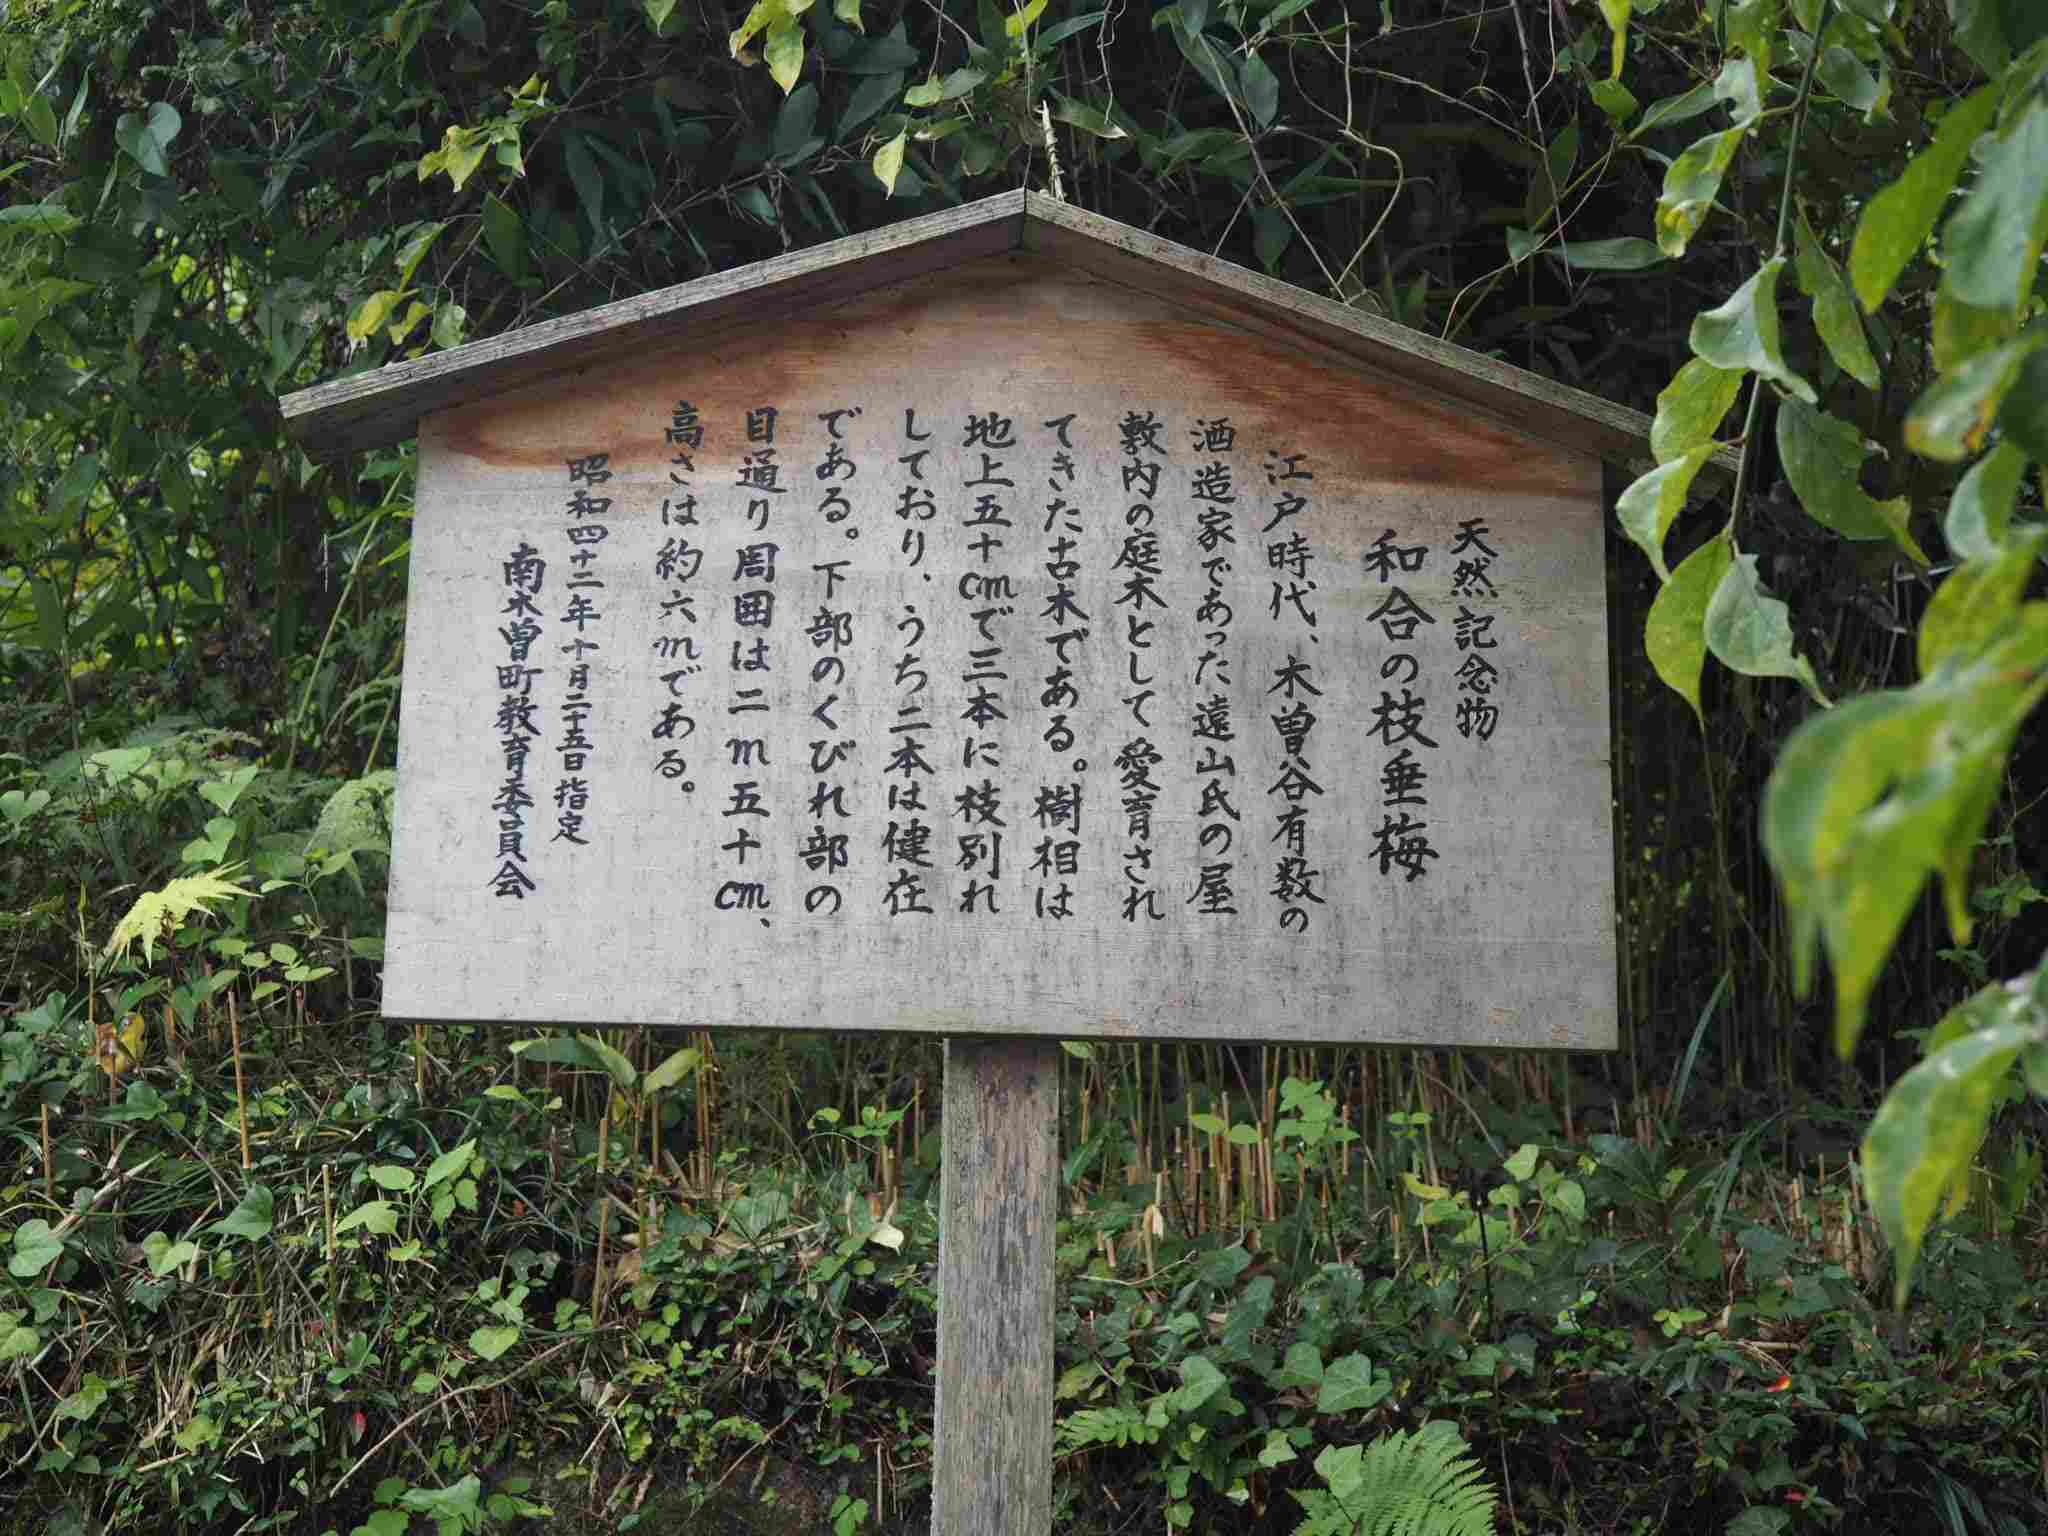 天然記念物
和合の枝垂梅
江戸時代、木曽谷有数の
酒造家であった遠山氏の屋
敷内の庭木として愛育され
てきた古木である。樹相は
地上五十cmで三本に枝別れ
しており、うち二本は健在
である。下部のくびれ部の
目通り周囲は二m五十cm、
高さは約六mである。
昭和四十二年十月二十五日指定
南木曽町教育委員会